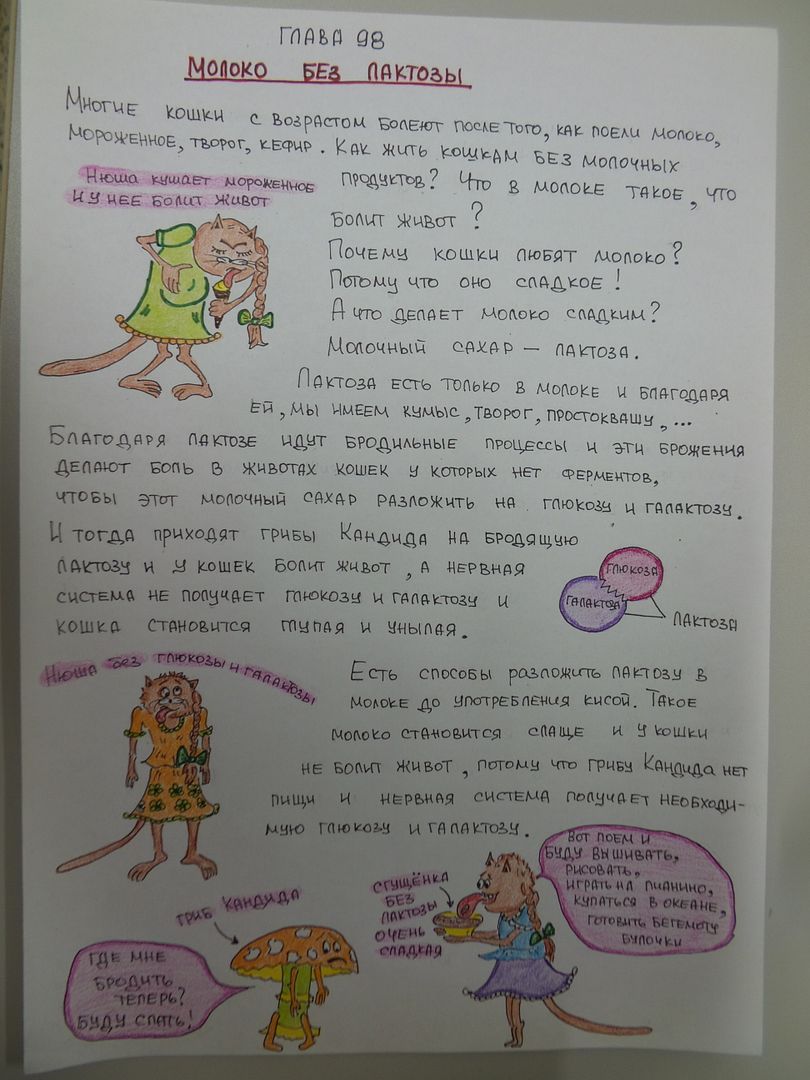 ГЛАВА 98
МОЛОКО БЕЗ ЛАКТОЗЫ
МНОГИЕ КОШКИ С ВОЗРАСТОМ БОЛЕЮТ ПОСЛЕ ТОГО, КАК ПОЕЛИ МОЛОКО,
МОРОЖЕННОЕ, ТВОРОГ, КЕФИР. КАК ЖИТЬ КОШКАМ БЕЗ МОЛОЧНЫХ
НЮША КУШАЕТ МОРОЖЕННОЕ
И У НЕЕ БОЛИТ ЖИВОТ
ПРОДУКТОВ? ЧТО В МОЛОКЕ ТАКОЕ, ЧТО
БОЛИТ ЖИВОТ?
ПОЧЕМУ КОШКИ ЛЮБЯТ МОЛОКО?
ПОТОМУ ЧТО ОНО СЛАДКОЕ!
А ЧТО ДЕЛАЕТ МОЛОКО СЛАДКИМ?
МОЛОЧНЫЙ САХАР – ЛАКТОЗА.
ЛАКТОЗА ЕСТЬ ТОЛЬКО В МОЛОКЕ И БЛАГОДАРЯ
ЕЙ, МЫ ИМЕЕМ КУМЫС, ТВОРОГ, ПРОСТОКВАШУ, ...
БЛАГОДАРЯ ЛАКТОЗЕ ИДУТ БРОДИЛЬНЫЕ ПРОЦЕССЫ И ЭТИ БРОЖЕНИЯ
ДЕЛАЮТ БОЛЬ В ЖИВОТАХ КОШЕК У КОТОРЫХ НЕТ ФЕРМЕНТОВ,
ЧТОБЫ ЭТОТ МОЛОЧНЫЙ САХАР РАЗЛОЖИТЬ НА ГЛЮКОЗУ И ГАЛАКТОЗУ.
И ТОГДА ПРИХОДЯТ ГРИБЫ КАНДИДА НА БРОДЯЩУЮ
ЛАКТОЗУ И У КОШЕК БОЛИТ ЖИВОТ, А НЕРВНАЯ
СИСТЕМА НЕ ПОЛУЧАЕТ ГЛЮКОЗУ И ГАЛАКТОЗУ И
КОШКА СТАНОВИТСЯ ГЛУПАЯ И УНЫЛАЯ.
ГЛЮКОЗА
ГАЛАКТОЗА
ЛАКТОЗА
НЮША БЕЗ ГЛЮКОЗЫ И ГАЛАКТОЗЫ
ЕСТЬ СПОСОБЫ РАЗЛОЖИТЬ ЛАКТОЗУ В
МОЛОКЕ ДО УПОТРЕБЛЕНИЯ КИСОЙ. ТАКОЕ
МОЛОКО СТАНОВИТСЯ СЛАЩЕ И У КОШКИ
НЕ БОЛИТ ЖИВОТ, ПОТОМУ ЧТО ГРИБУ КАНДИДА НЕТ
ПИЩИ И НЕРВНАЯ СИСТЕМА ПОЛУЧАЕТ НЕОБХОДИ-
МУЮ ГЛЮКОЗУ И ГАЛАКТОЗУ.
ГРИБ КАНДИДА
ГДЕ МНЕ
БРОДИТЬ
ТЕПЕРЬ?
БУДУ СПАТЬ!
СГУЩЁНКА
БЕЗ
ЛАКТОЗЫ
ОЧЕНЬ
СЛАДКАЯ
ВОТ ПОЕМ И
БУДУ ВЫШИВАТЬ,
РИСОВАТЬ,
ИГРАТЬ НА ПИАНИНО,
КУПАТЬСЯ В ОКЕАНЕ,
ГОТОВИТЬ БЕГЕМОТУ
БУЛОЧКИ